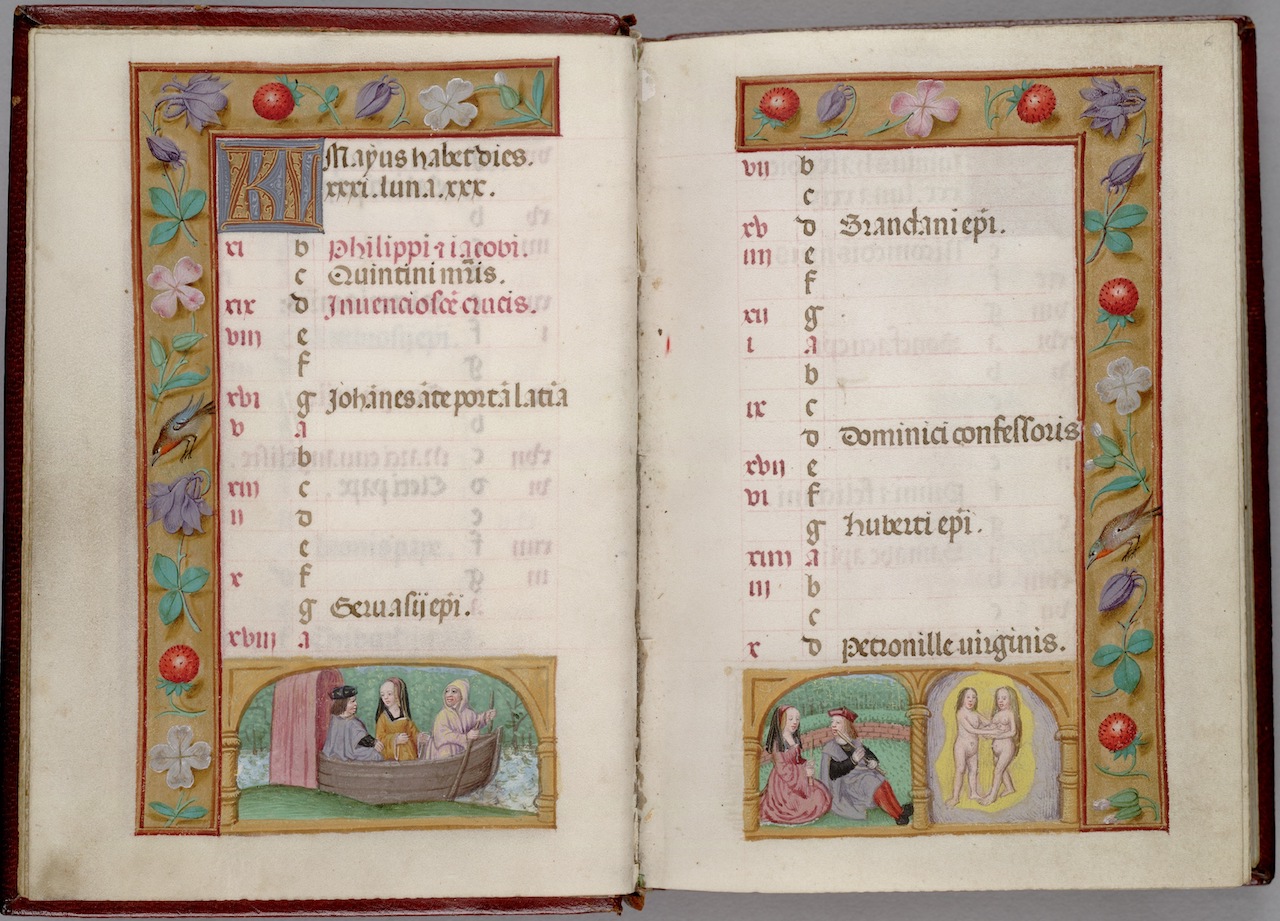 KL Mayus habet dies.
xxxi. luna. xxx.
xi b Philippi ⁊ iacobi.
c Quintini mr̄is.
xix d Inuencio sc̄e crucis.
viii e
f
xvi g Johānes āte portā latīā
v a
b
xiii c
ii d
e
x f
g Seruasij ep̄i.
xviii a
6
vii b
c
xv d Brandani ep̄i.
iiii e
f
xii g
i a
b
ix c
d Dominici confessoris
xvii e
vi f
g Huberti ep̄i.
xiiii a
iii b
c
x d Petronille uirginis.